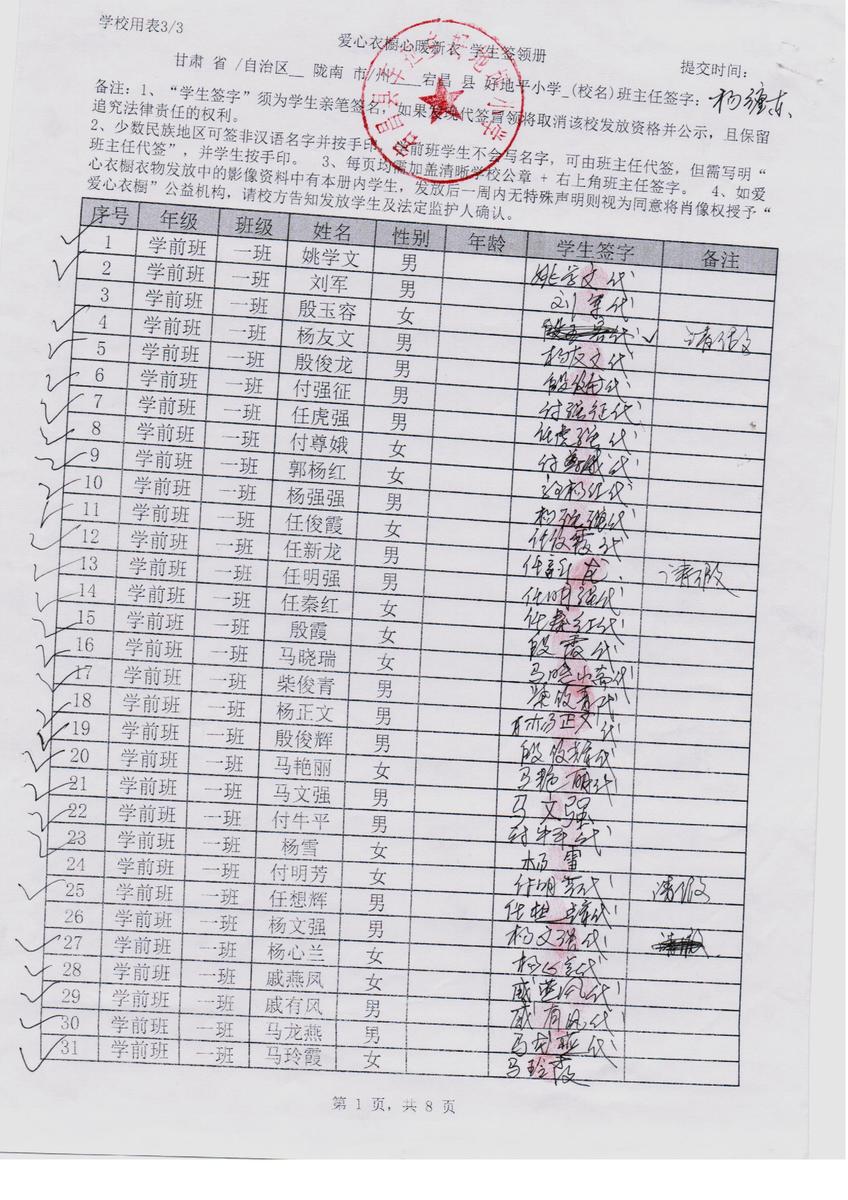 学校用表3/3
爱心衣橱心暖新衣 学生签领册
提交时间:
甘肃 省 /自治区__ 陇南 市/州____宕昌 县 好地平小学_(校名)班主任签字:
备注:1、“学生签字”须为学生亲笔签名,如果发现代签冒领将取消该校发放资格并公示,且保留
追究法律责任的权利。
2、少数民族地区可签非汉语名字并按手印。学前班学生不会写名字,可由班主任代签,但需写明“
班主任代签”,并学生按手印。 3、每页均需加盖清晰学校公章 + 右上角班主任签字。 4、如爱
心衣橱衣物发放中的影像资料中有本册内学生,发放后一周内无特殊声明则视为同意将肖像权授予“
爱心衣橱”公益机构,请校方告知发放学生及法定监护人确认。
序号 年级 班级 姓名 性别 年龄 学生签字 备注
1 学前班 一班 姚学文 男 姚学文代
2 学前班 一班 刘军 男 刘军代
3 学前班 一班 殷玉容 女
4 学前班 一班 杨友文 男 杨友文代
5 学前班 一班 殷俊龙 男
6 学前班 一班 付强征 男 付强征代
7 学前班 一班 任虎强 男 任虎强代
8 学前班 一班 付尊娥 女
9 学前班 一班 郭杨红 女
10 学前班 一班 杨强强 男 杨强强代
11 学前班 一班 任俊霞 女 任俊霞代
12 学前班 一班 任新龙 男 任新龙
13 学前班 一班 任明强 男 任明强代
14 学前班 一班 任秦红 女 任秦红代
15 学前班 一班 殷霞 女 殷霞代
16 学前班 一班 马晓瑞 女
17 学前班 一班 柴俊青 男 柴俊青代
18 学前班 一班 杨正文 男 杨正文代
19 学前班 一班 殷俊辉 男 殷俊辉代
20 学前班 一班 马艳丽 女 马艳丽代
21 学前班 一班 马文强 男 马文强
22 学前班 一班 付牛平 男 付牛平代
23 学前班 一班 杨雪 女 杨雪
24 学前班 一班 付明芳 女 付明芳代
25 学前班 一班 任想辉 男
26 学前班 一班 杨文强 男 杨文强代
27 学前班 一班 杨心兰 女 杨心兰代
28 学前班 一班 戚燕凤 女 戚燕凤代
29 学前班 一班 戚有风 男 戚有风代
30 学前班 一班 马龙燕 男 马龙燕代
31 学前班 一班 马玲霞 女 马玲霞
第 1 页,共 8 页